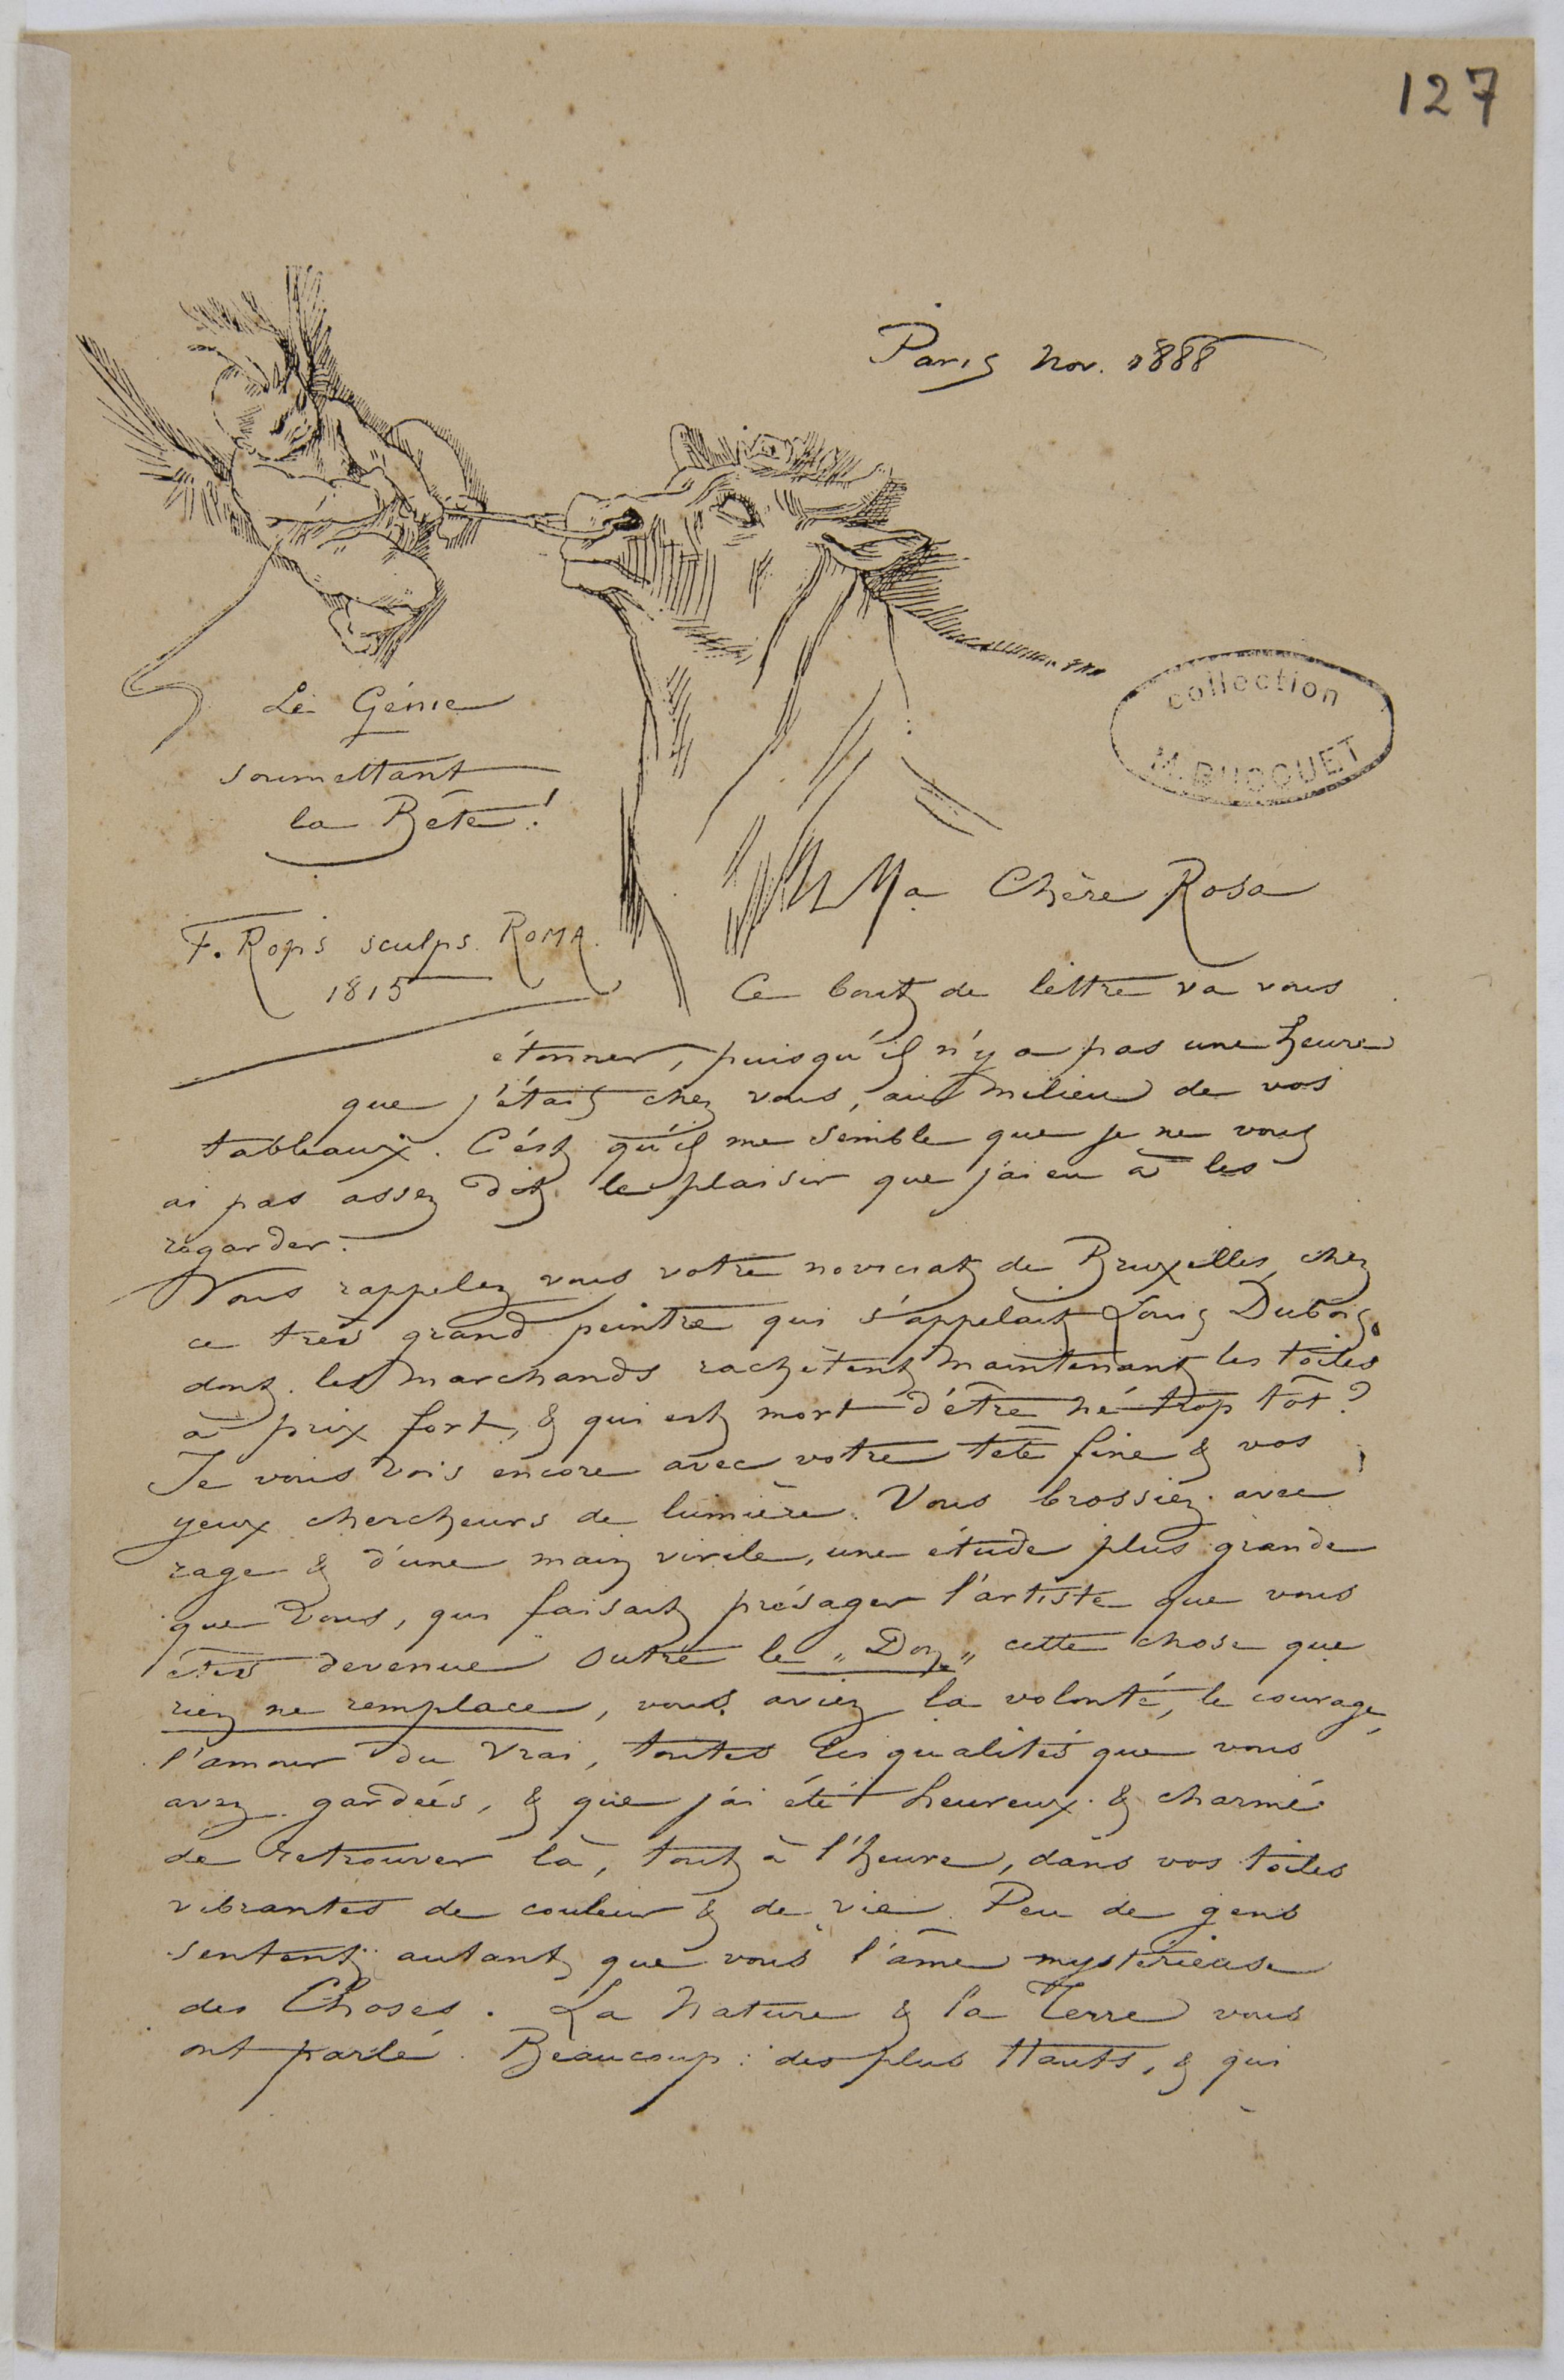 127
Paris Nov. 1888
collection
M. DUCQUET
Le Génie
soumettant
la Bête !
F. Rops sculps. ROMA.
1815
Ma Chère Rosa
Ce bout de lettre va vous
étonner, puisqu'il n'y a pas une heure
que j'étais chez vous, au milieu de vos
tableaux. C'est qu'il me semble que je ne vous
ai pas assez dit le plaisir que j'ai eu à les
regarder.
Vous rappelez vous votre noviciat de Bruxelles, chez
ce très grand peintre qui s'appelait Louis Dubois,
dont les marchands rachètent maintenant les toiles
à prix fort, & qui est mort d'être né trop tôt ?
Je vous vois encore avec votre tête fine & vos
yeux chercheurs de lumière. Vous brossiez avec
rage & d'une main virile, une étude plus grande
que vous, qui faisait présager l'artiste que vous
êtes devenue outre le „Don„ cette chose que
rien ne remplace, vous aviez la volonté, le courage,
l'amour du Vrai, toutes les qualités que vous
avez gardées, & que j'ai été heureux & charmé
de retrouver là, tout à l'heure, dans vos toiles
vibrantes de couleur & de vie. Peu de gens
sentent autant que vous l'âme mystérieuse
des Choses. La Nature & la Terre vous
ont parlé. Beaucoup : des plus Hauts, & qui